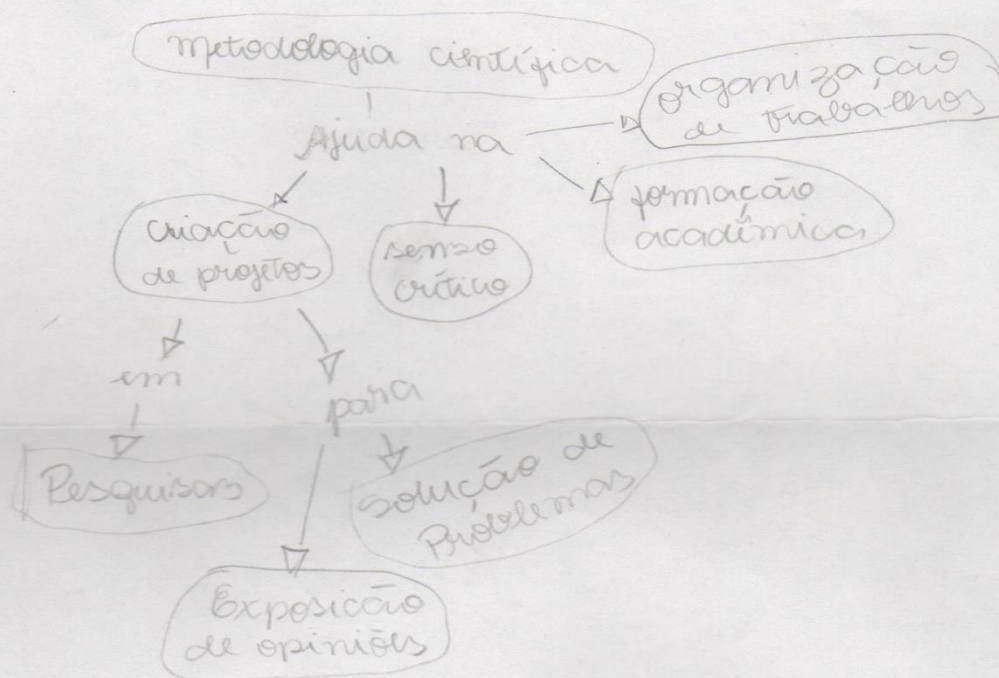 metodologia científica
organização
de trabalhos
Ajuda na
formação
acadêmica
criação
de projetos
senso
crítico
em
para
Pesquisas
solução de
Problemas
Exposicão
de opiniões